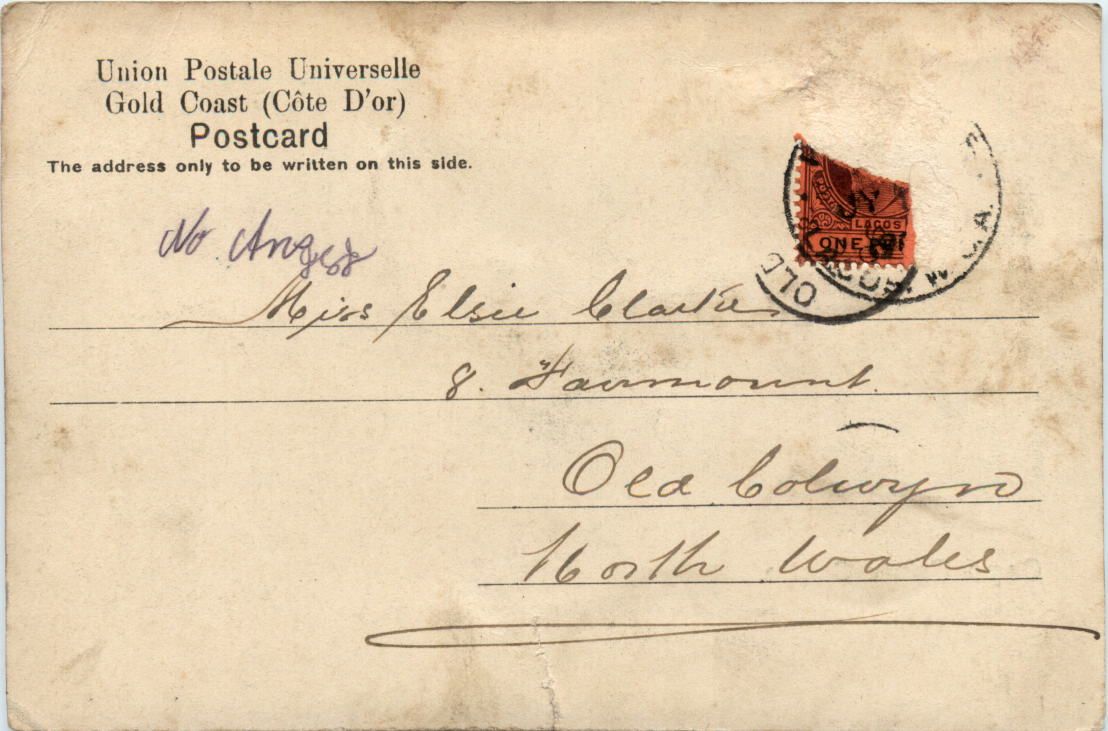 Union Postale Universelle
Gold Coast (Côte D'or)
Postcard
The address only to be written on this side.
No
LAGOS
ONE
OLD
Miss Elsie Clarke
8. Fairmount.
Old Colwyn
North Wales